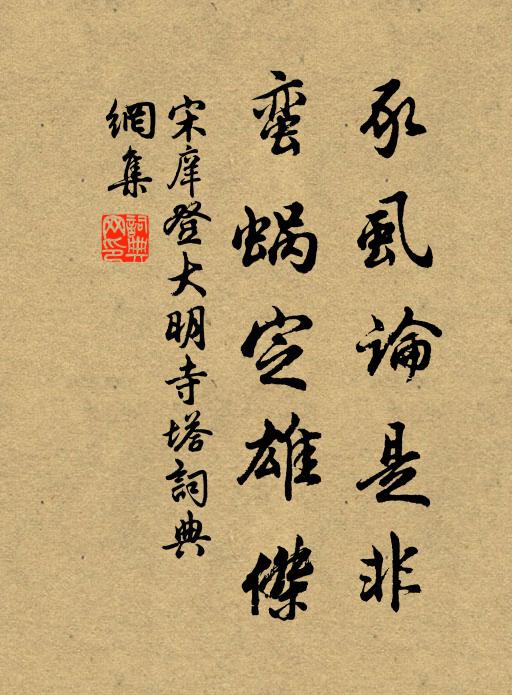 豕虱論是非
蠻蝸定雄傑
宋庠登大明寺塔詞典
網集
詞典網印